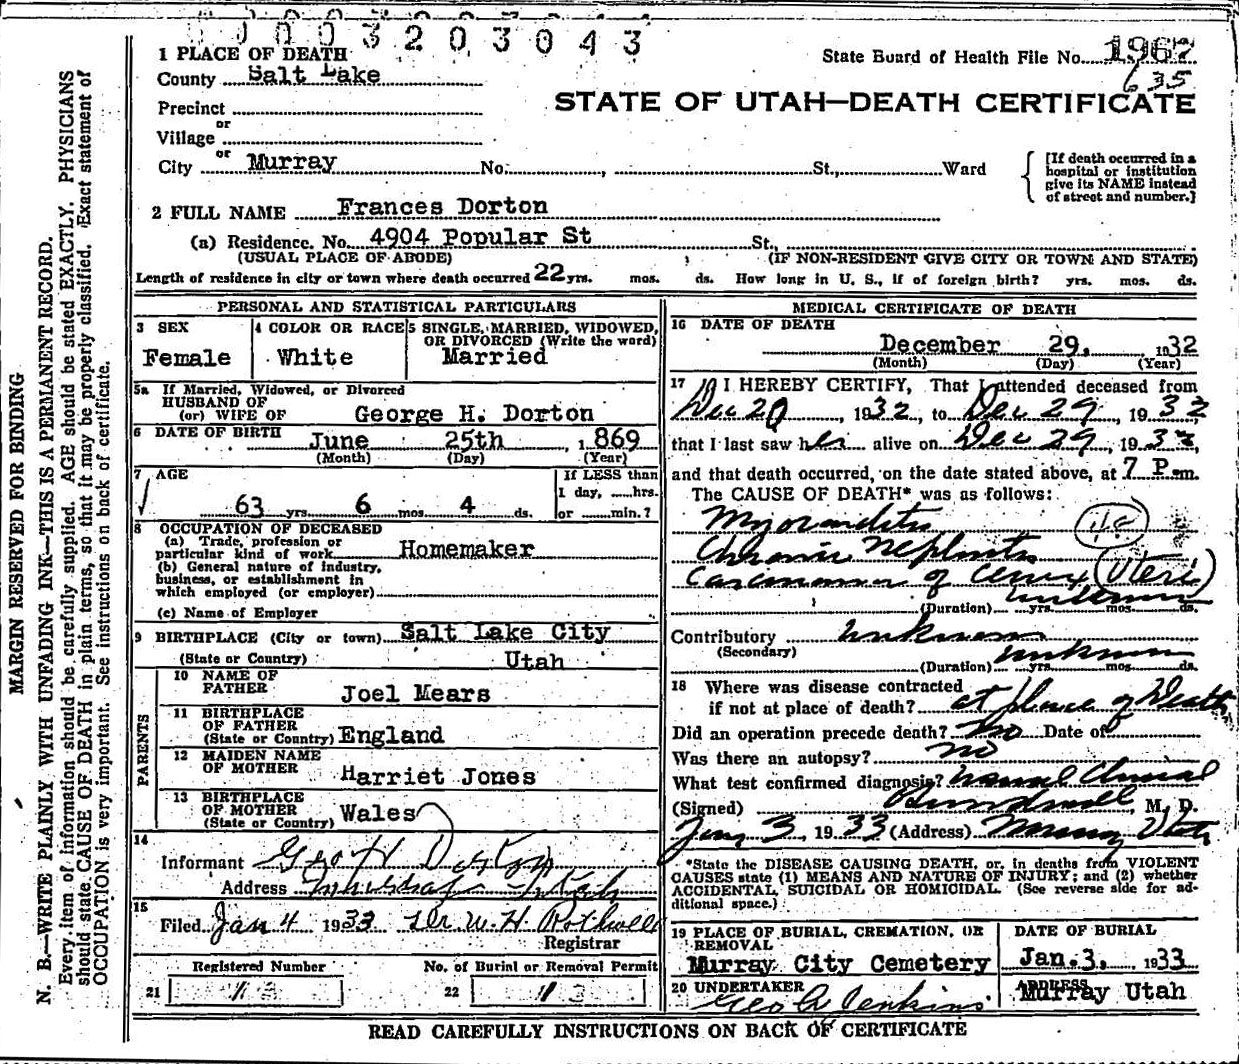 0003203043
1 PLACE OF DEATH
State Board of Health File No. 1967
635
County Salt Lake
STATE OF UTAH—DEATH CERTIFICATE
Precinct
or
Village
or
City Murray No. St., Ward
[If death occurred in a hospital or institution give its NAME instead of street and number.]
2 FULL NAME Frances Dorton
(a) Residence. No. 4904 Popular St St.,
(USUAL PLACE OF ABODE) (IF NON-RESIDENT GIVE CITY OR TOWN AND STATE)
Length of residence in city or town where death occurred 22 yrs. mos. ds. How long in U. S., if of foreign birth? yrs. mos. ds.
PERSONAL AND STATISTICAL PARTICULARS
3 SEX
Female
4 COLOR OR RACE
White
5 SINGLE, MARRIED, WIDOWED, OR DIVORCED (Write the word)
Married
5a If Married, Widowed, or Divorced
HUSBAND OF
(or) WIFE OF George H. Dorton
6 DATE OF BIRTH June 25th 1869
(Month) (Day) (Year)
7 AGE
63 yrs. 6 mos. 4 ds.
If LESS than
1 day, hrs.
or min.?
8 OCCUPATION OF DECEASED
(a) Trade, profession or
particular kind of work Homemaker
(b) General nature of industry,
business, or establishment in
which employed (or employer)
(c) Name of Employer
9 BIRTHPLACE (City or town) Salt Lake City
(State or Country) Utah
PARENTS
10 NAME OF
FATHER Joel Mears
11 BIRTHPLACE
OF FATHER
(State or Country) England
12 MAIDEN NAME
OF MOTHER Harriet Jones
13 BIRTHPLACE
OF MOTHER
(State or Country) Wales
14
Informant Geo H Dorton
Address Murray Utah
15
Filed Jan 4 1933 Dr. W. H. Rothwell
Registrar
Registered Number No. of Burial or Removal Permit
21 13 22 13
MEDICAL CERTIFICATE OF DEATH
16 DATE OF DEATH
December 29, 1932
(Month) (Day) (Year)
17 I HEREBY CERTIFY, That I attended deceased from
Dec 20, 1932, to Dec 29, 1932
that I last saw her alive on Dec 29, 1932,
and that death occurred, on the date stated above, at 7 P.m.
The CAUSE OF DEATH* was as follows:
Myocarditis
Chronic Nephritis
Carcinoma of Cervix (Uteri)
unknown
(Duration) yrs. mos. ds.
Contributory unknown
(Secondary) unknown
(Duration) yrs. mos. ds.
18 Where was disease contracted
if not at place of death? at place of Death
Did an operation precede death? no Date of
Was there an autopsy? no
What test confirmed diagnosis? Clinical
(Signed) M. D.
Jan 3, 1933 (Address) Murray Utah
*State the DISEASE CAUSING DEATH, or, in deaths from VIOLENT
CAUSES state (1) MEANS AND NATURE OF INJURY; and (2) whether
ACCIDENTAL, SUICIDAL OR HOMICIDAL. (See reverse side for ad-
ditional space.)
19 PLACE OF BURIAL, CREMATION, OR
REMOVAL
Murray City Cemetery
DATE OF BURIAL
Jan. 3, 1933
20 UNDERTAKER
Geo A Jenkins
ADDRESS
Murray Utah
READ CAREFULLY INSTRUCTIONS ON BACK OF CERTIFICATE
MARGIN RESERVED FOR BINDING
N. B.—WRITE PLAINLY WITH UNFADING INK—THIS IS A PERMANENT RECORD.
Every item of information should be carefully supplied. AGE should be stated EXACTLY. PHYSICIANS
should state CAUSE OF DEATH in plain terms, so that it may be properly classified. Exact statement of
OCCUPATION is very important. See instructions on back of certificate.